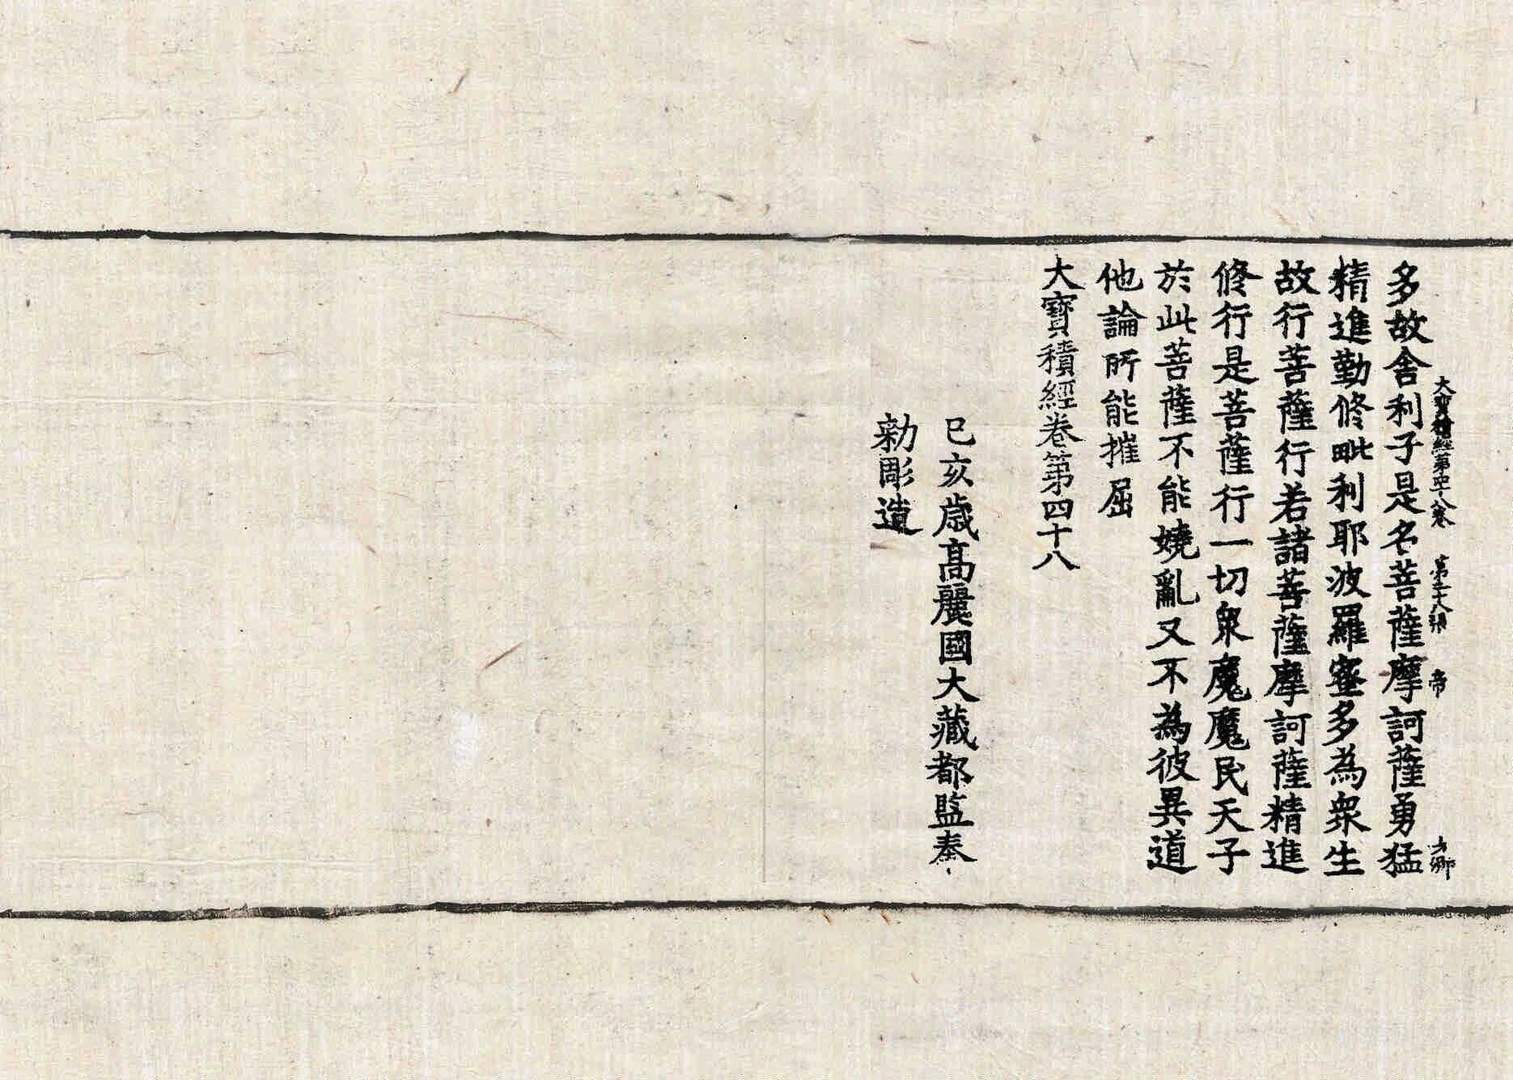 大寶積經第四十八卷 第二十八張 帝 
多故舍利子是名菩薩摩訶薩勇猛
精進勤修毗利耶波羅蜜多為眾生
故行菩薩行若諸菩薩摩訶薩精進
修行是菩薩行一切眾魔魔民天子
於此菩薩不能嬈亂又不為彼異道
他論所能摧屈
大寶積經卷第四十八
己亥歲高麗國大藏都監奉
勅彫造